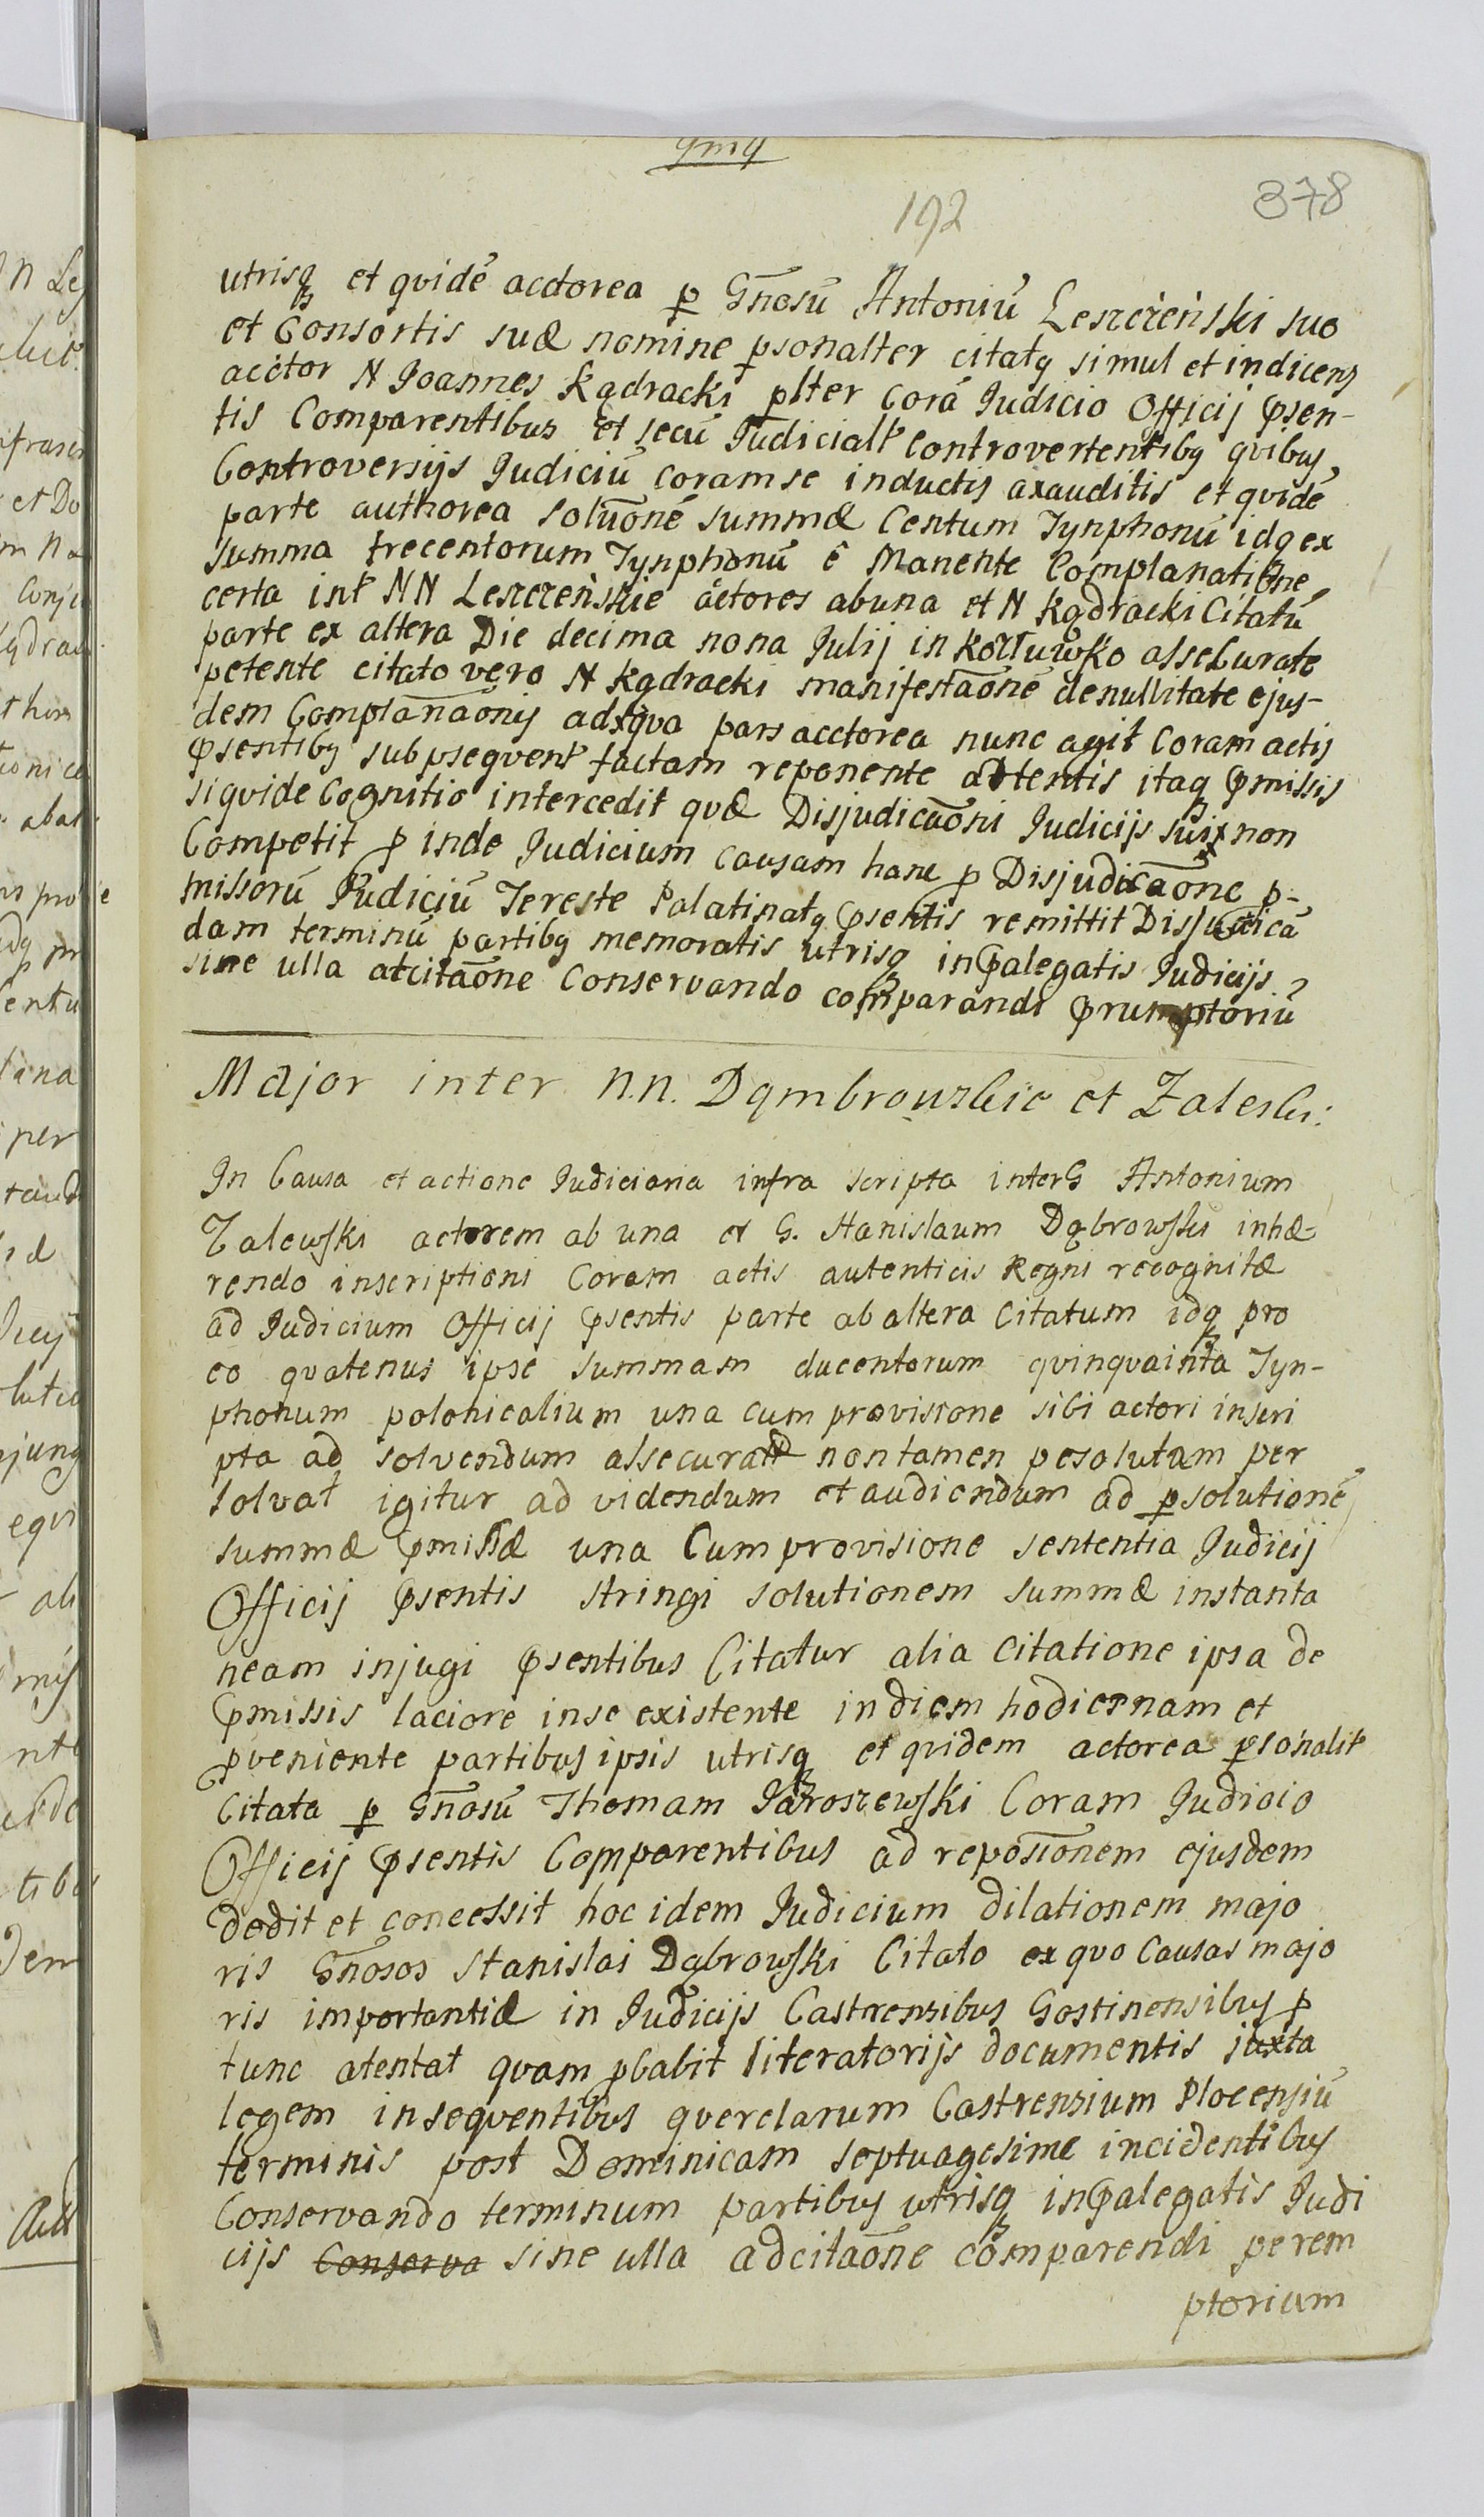 192
378
utrisq et qvidē acctorea p Gn̄osū Antoniū Leszczeński suo
et Consortis suæ nomine psonalter citatq simul et indicens
acctor N Joannes Kądracki plter Corā Iudicio Officij Psen-
tis Comparentibus et secū Iudicialr Controvertentibq qvibus
Controversijs Iudiciū coram se inductis axauditis et qvidē
parte authorea soluōnē summæ Centum Tynphonū idq ex
summa trecentorum Tynphonū ē Manente Complanatione
certa intr NN Leszczeńskie actores abuna et N Kądracki Citatū
parte ex altera Die decima nona Julij in assecurate
petente citato vero N Kądracki manifestaōnē de nullitate ejus-
dem Complanaōnis adqva pars acctorea nunc agit Coram actis
Psentibq subpseqventr factam reponente attentis itaq Pmissis
siqvide Cognitio intercedit qvæ Disjudicaōni Iudicijs suix non
Competit p inde Iudicium causam hanc p Disjudicaōne p-
missorū Iudiciū Tereste Palatinatq Psentis remittit Disjudicā
dam terminū partibq memoratis utrisq in Palegatis Iudicijs
sine ulla atcitaōne Conservando comparandi Prumptoriū
Major inter N.N. Dąmbrowskie et Zaleski:
In Causa et actione Iudiciaria infra scripta inter G Antonium
Zalewski actorem ab una et G. Stanislaum Dąbrowski inhæ-
rendo inscriptioni Coram actis autenticis Regni recognitæ
ad Iudicium Officij Psentis parte ab altera Citatum idq pro
eo qvatenus ipse summam ducentorum qvinqvainta Tyn-
phonum polonicalium una cum provisione sibi actori inscri
pta ad solvendum assecurata non tamen pesolutam per
solvat igitur ad videndum et audiendum ad psolutionē
summæ Pmissæ una Cum provisione sententia Iudicij
Officij Psentis stringi solutionem summæ instanta
neam injugi Psentibus Citatur alia Citatione ipsa de
Pmissis laciore inse existente in diem hodiernam et
pveniente partibus ipsis utrisq et qvidem actorea psonalitr
Citata p Gn̄osū Thomam Jaroszewski Coram Iudicio
Officij Psentis Comparentibus ad reposiōnem ejusdem
dedit et concessit hoc idem Iudicium dilationem majo
ris Gn̄osos Stanislai Dąbrowski Citato ex qvo Causas majo
ris importantiæ in Iudicijs Castrensibus Gostinensibus p
tunc atentat qvam pbabit literatorijs documentis juxta
legem insequentibus querelarum Castrensium Plocensiū
terminis post Dominicam septuagesime incidentibus
Conservando terminum partibus utrisq in Palegatis Iudi
cijs Conserva sine ulla adcitaōne Comparendi perem
ptorium